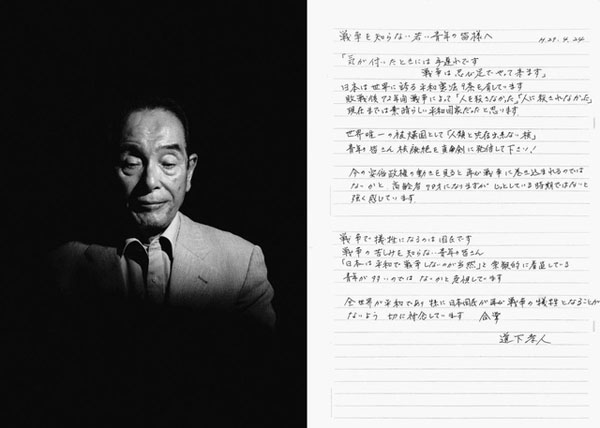 戦争を知らない若い青年の皆様へ H29.4.24
「気が付いたときには手遅れです
戦争は忍び足でやって来ます」
日本は世界に誇る平和憲法9条を有しています
敗戦後72年間戦争によって「人を殺さなかった」「人に殺されなかった」
現在までは素晴らしい平和国家だったと思います
世界唯一の被爆国として「人類と共存出来ない核」
青年の皆さん核廃絶を真剣に発信して下さい!
今の安倍政権の動きを見ると再び戦争に巻き込まれるのでは
ないかと、高齢者 になりますがじっとしている時期ではないと
強く感じています
戦争で犠牲になるのは国民です
戦争の苦しみを知らない青年の皆さん
「日本は平和で戦争しないのが当然」と楽観的に看過している
青年が多いのではないかと危惧しています
全世界が平和であり特に日本国民が再び戦争の犠牲となることが
ないよう 切に祈念しています 合掌
道下孝人